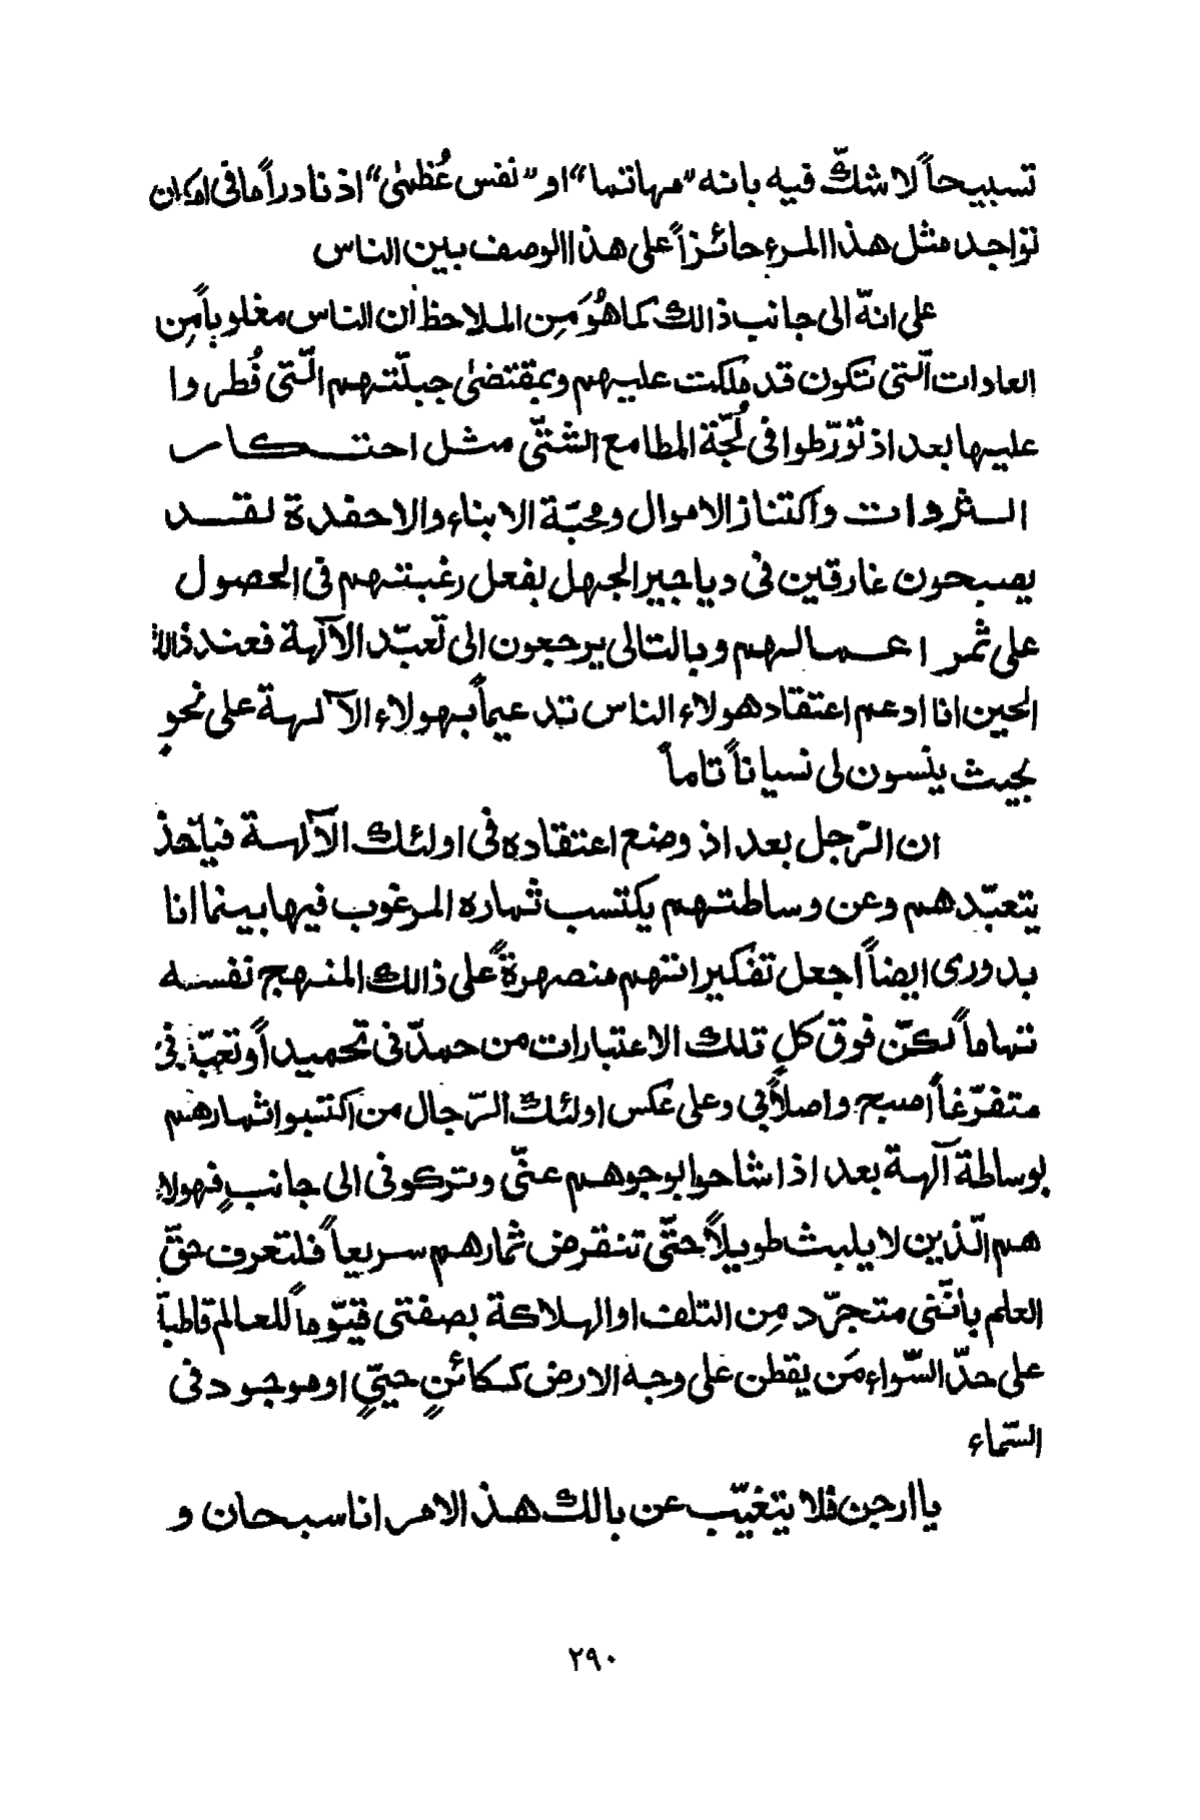 تسبيحاً لا شكّ فيه بانه "مهاتما" او "نفس عُظمىٰ" اذ نادراً ما فى امكان
تواجد مثل هذا المرء حائزاً على هذا الوصف بين الناس
على انهّ الى جانب ذالك كما هُوَ مِن الملاحظ أن الناس مغلوباً مِن
العادات الّتى تكون قد ملكت عليهم وبمقتضىٰ جبلّتهم الّتى فُطروا
عليها بعد اذ تورّطوا فى لُجّة المطامع الشتّى مثل احتكار
الثروات واكتناز الاموال ومحبّة الابناء والاحفدة لقد
يصبحون غارقين فى دياجير الجهل بفعل رغبتهم فى الحصول
على ثمر اعمالهم وبالتالى يرجعون الى تعبّد الآلهة فعند ذالك
الحين انا ادعم اعتقاد هولاء الناس تدعيماً بهولاء الآلهة على نحوٍ
بحيث ينسون لى نسياناً تاماً
ان الرّجل بعد اذ وضع اعتقاده فى اولئك الآلهة فيأخذ
يتعبّدهم وعن وساطتهم يكتسب ثماره المرغوب فيها بينما انا
بدورى ايضاً اجعل تفكيراتهم منصهرةً على ذالك المنهج نفسه
تماماً لكنّ فوق كلِ تلك الاعتبارات من حمدّ فى تحميد أو تعبّد فى
متفرّغاً أصبح واصلاً بى وعلى عكس اولئك الرّجال من اكتسبوا ثمارهم
بوساطة آلهة بعد اذ اشاحوا بوجوههم عنّى وتركونى الى جانبٍ فهولاء
هم الّذين لا يلبث طويلاً حتّى تنقرض ثمارهم سريعاً فلتعرف حقّ
العلم بانّنى متجرّد مِن التلف او الهلاكة بصفتى قيّوماً للعالم قاطبةً
على حدّ السّواء مَن يقطن على وجه الارض ككائنٍ حيّيٍ او موجود فى
السّماء
يا ارجن فلا يتغيّب عن بالك هذ الامر انا سبحان و
٢٩٠